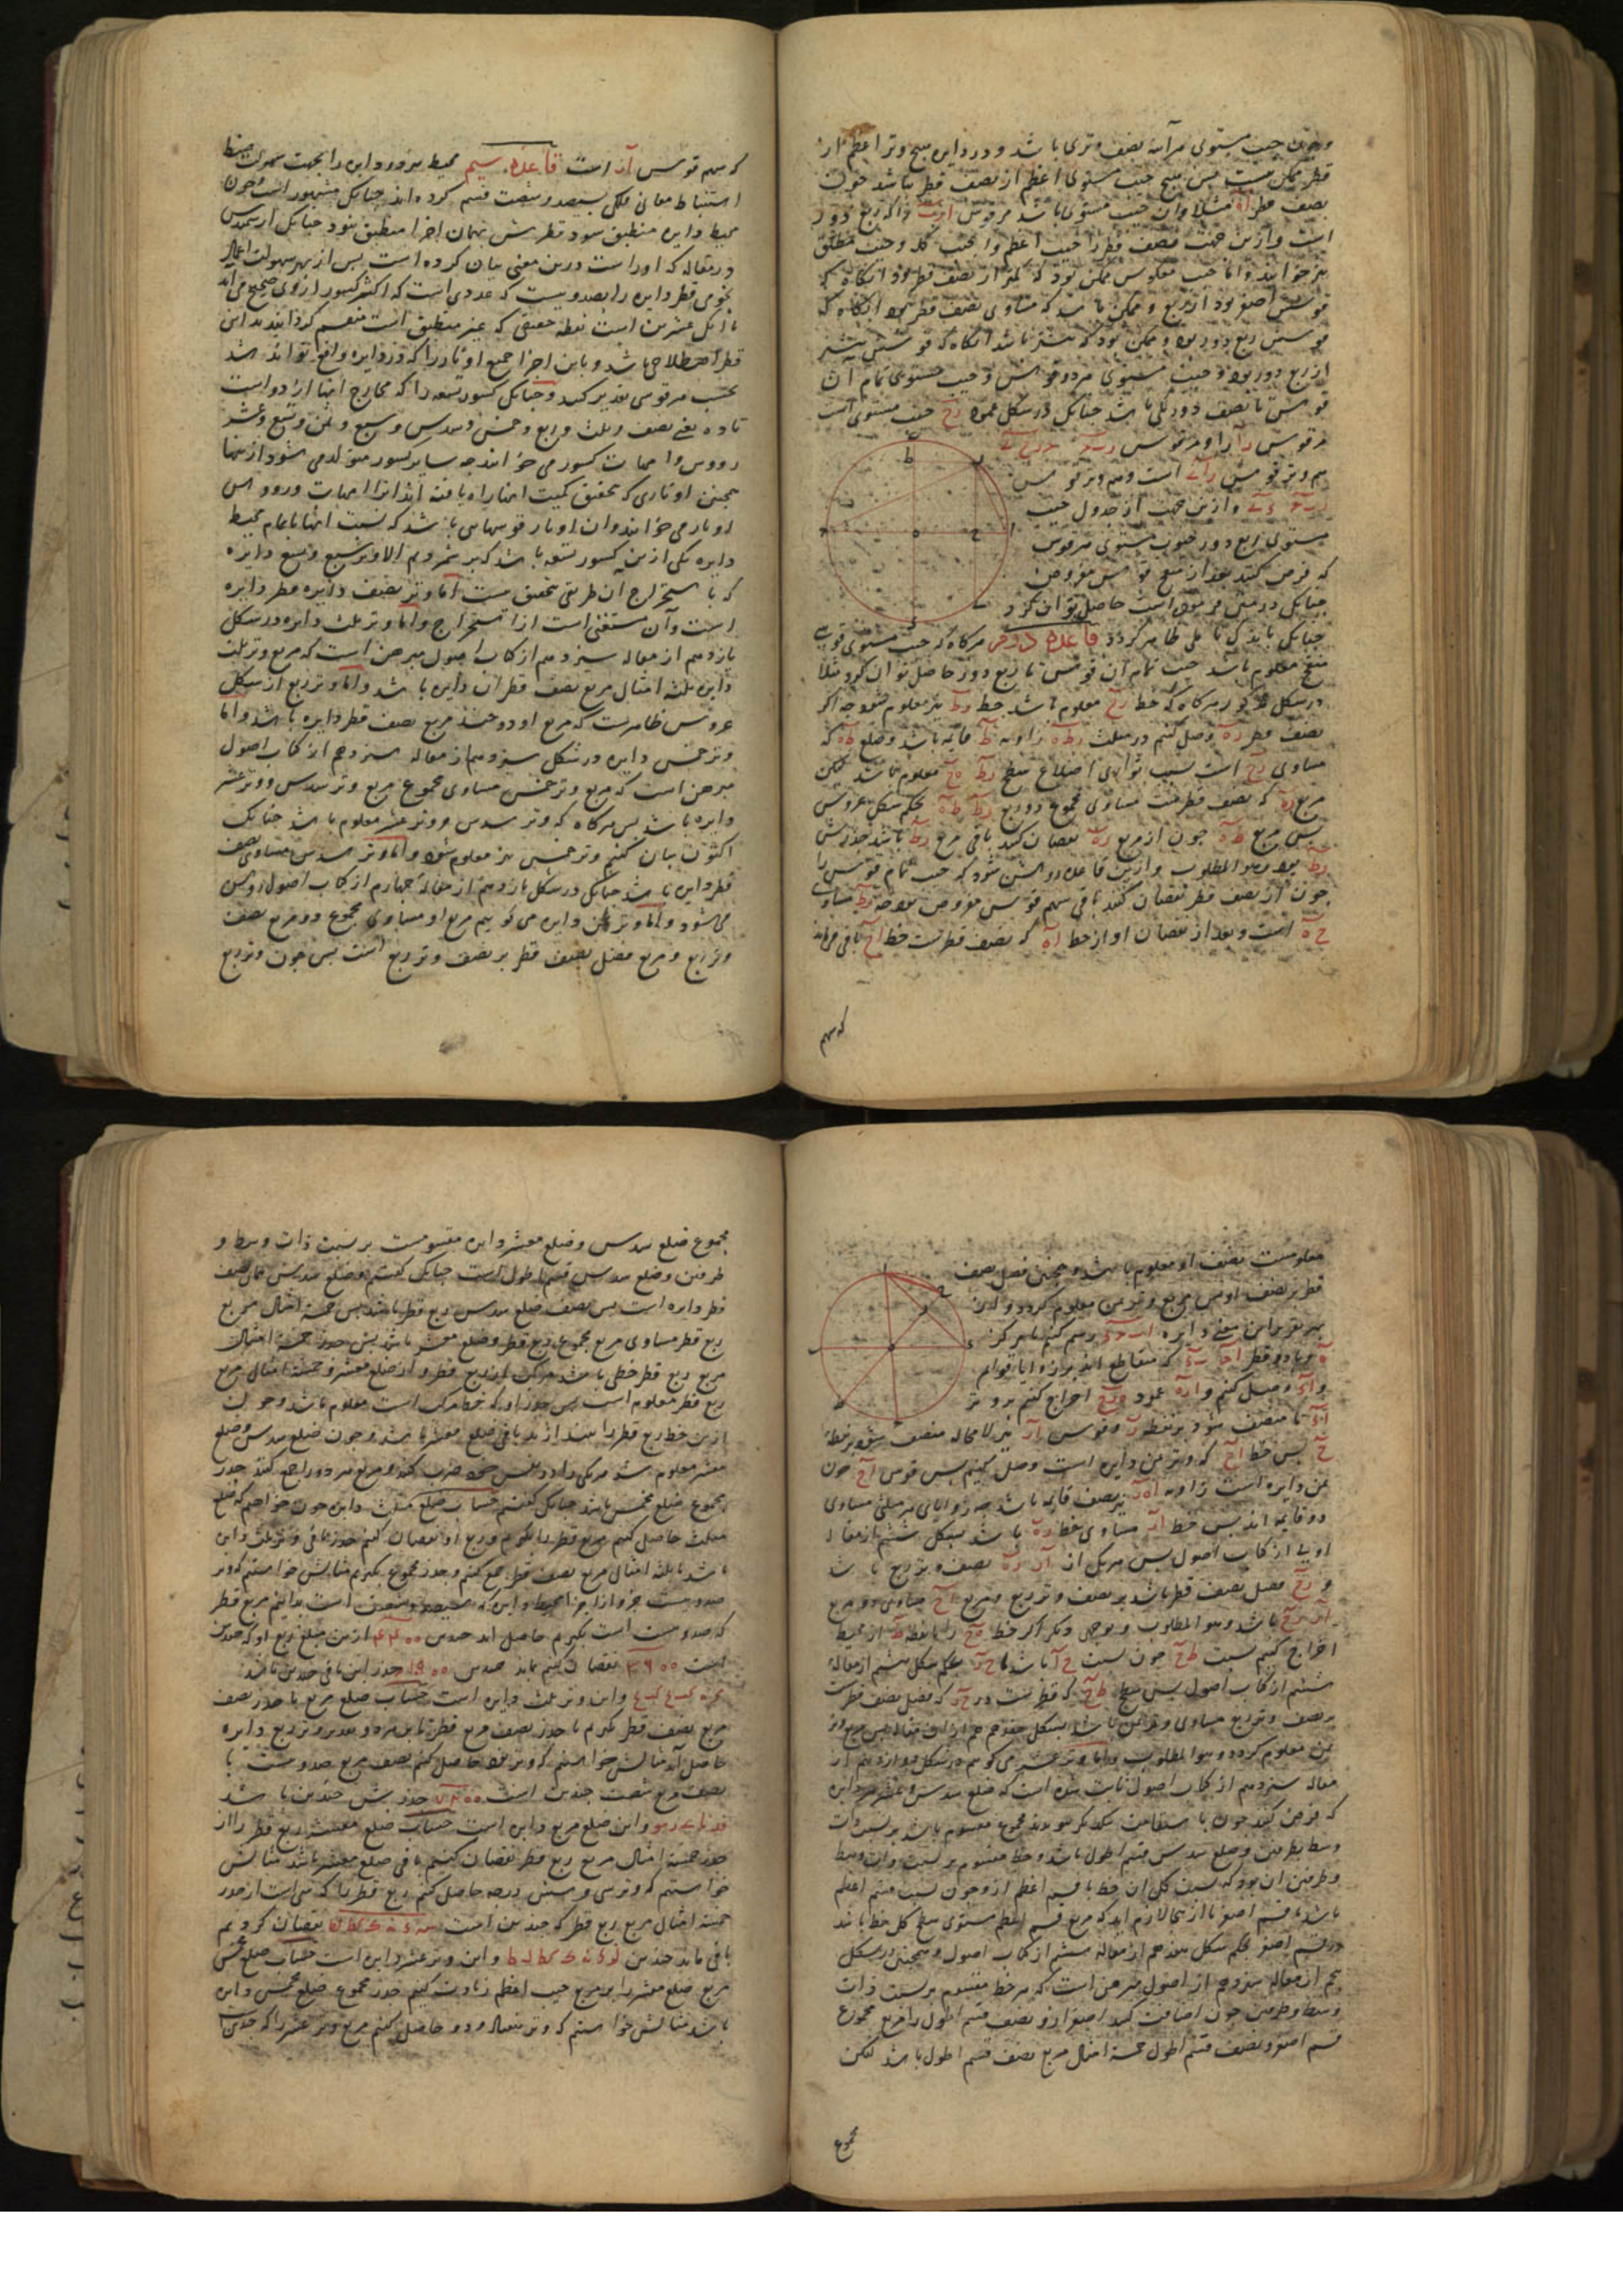 و چون جیب مستوی هر آینه نصف وتری باشد و در دایره هیچ وتر اعظم از
قطر ممکن نیست پس هیچ جیب مستوی اعظم از نصف قطر نباشد چون
نصف قطر اه مثلا و آن جیب مستوی باشد مر قوس اب را که ربع دور
است و ازین جهت نصف قطر را جیب اعظم و جیب کله و جیب مطلق
نیز خوانند و اما جیب معکوس ممکن بود که کمتر از نصف قطر بود آنگاه که
قوسش اصغر بود از ربع و ممکن باشد که مساوی نصف قطر بود آنگاه که
قوسش ربع دور بود و ممکن بود که بیشتر باشد آنگاه که قوسش بیشتر
از ربع دور بود و جیب مستوی هر دو قوس و جیب مستوی تمام آن
قوس تا نصف دور یکی باشد چنانکه در شکل عمود رح جیب مستوی است
مر قوس را را و مر قوس
هم وتر قوس است و هم وتر قوس
و ازین جهت از جدول جیب
مستوی ربع دور جیوب مستوی هر قوس
که فرض کنند بعد از تنقیح قوس مفروض
چنانکه در پیش مبرهن است حاصل توان کرد
چنانکه باید که تأمل ظاهر گردد قاعده دوم هرگاه که جیب مستوی قوسی
منقح معلوم باشد جیب تمام آن قوس تا ربع دور حاصل توان کرد مثلا
در شکل مذکور هرگاه که خط رح معلوم باشد خط رط نیز معلوم شود چه اگر
نصف قطر ره وصل کنیم در مثلث رطه زاویه ط قایمه باشد و ضلع طه که
مساوی رح است بسبب توازی اضلاع سطح رط ه ح معلوم باشد لیکن
مربع ره که نصف قطر است مساوی مجموع دو مربع رط طه بحکم شکل عروس
پس مربع طه چون از مربع ره نقصان کنند باقی مربع رط باشد جذرش
رط بود و هو المطلوب و ازین قاعده روشن شود که جیب تمام قوس را
چون از نصف قطر نقصان کنند باقی سهم قوس مفروض بود چه رط مساوی
ح ه است و بعد از نقصان او از خط اه که نصف قطر است خط اح باقی ماند
که سهم
که سهم قوس ار است قاعده سیم محیط هر دایره را بجهت سهولت ضبط
استنباط معانی فلکی بسیصد و شصت قسم کرده اند چنانکه مشهور است و چون
محیط دایره منطبق شود قطرش بهمان اجزا منطبق نبود چنانکه ارشمیدس
در مقاله که او راست درین معنی بیان کرده است پس از بهر سهولت اعمال
نجومی قطر دایره را بصد و بیست که عددی است که اکثر کسور ازو صحیح می آید
تا آنکه عشرین است بقطعه حقیقی که غیر منطبق است منقسم کردانیدند این
قطر اصطلاحی باشد و باین اجزا جمیع اوتار را که در دایره واقع تواند شد
بحسب هر قوسی تقدیر کنند و چنانکه کسور تسعه را که مخارج آنها از دو است
تا ده یعنی نصف و ثلث و ربع و خمس و سدس و سبع و ثمن و تسع و عشر
رووس و امهات کسور می خوانند چه سایر کسور متولد می شود از آنها
همچنین اوتاری که بتحقیق کمیت آنها راه یافته اند آنرا امهات و رووس
اوتار می خوانند و آن اوتار قوسهایی باشد که نسبت آنها با تمام محیط
دایره یکی ازین کسور تسعه باشد که برشمردیم الا وتر سبع و تسع دایره
که باستخراج آن طریقی محقق نیست اما وتر نصف دایره قطر دایره
است و آن مستغنی است از استخراج و اما وتر ثلث دایره در شکل
یازدهم از مقاله سیزدهم از کتاب اصول مبرهن است که مربع وتر ثلث
دایره ثلثه امثال مربع نصف قطر آن دایره باشد و اما وتر ربع از شکل
عروس ظاهرست که مربع او دو چند مربع نصف قطر دایره باشد و اما
وتر خمس دایره در شکل سیزدهم از مقاله سیزدهم از کتاب اصول
مبرهن است که مربع وتر خمس مساوی مجموع مربع وتر سدس و وتر عشر
دایره باشد پس هرگاه که وتر سدس و وتر عشر معلوم باشد چنانکه
اکنون بیان کنیم وتر خمس نیز معلوم شود و اما وتر سدس مساوی نصف
قطر دایره باشد چنانکه در شکل یازدهم از مقاله چهارم از کتاب اصول روشن
می شود و اما وتر ثمن دایره می گوییم مربع او مساوی مجموع دو مربع نصف
وتر ربع و مربع فضل نصف قطر بر نصف وتر ربع است پس چون وتر ربع
معلومست نصف او معلوم باشد و همچنین فضل نصف
قطر بر نصف او پس مربع وتر ثمن معلوم گردد و از
بهر تقریر این معنی دایره اب ح رسم کنیم بر مرکز
ه و بر او دو قطر که متقاطع اند بر زوایای قوایم
و وصل کنیم و از ه عمود ه رح اخراج کنیم بر وتر
تا منصف شود بر نقطه ر و قوس نیز لا محاله منصف شود بر نقطه
ح پس خط اح که وتر ثمن دایره است وصل کنیم پس قوس اح چون
ثمن دایره است زاویه اه ر نیز نصف قایمه باشد چه زوایای هر مثلثی مساوی
دو قایمه اند پس خط ار مساوی خط ره باشد بشکل ششم از مقاله
اولی از کتاب اصول پس هر یک از ار ره نصف وتر ربع باشد
و رح فضل نصف قطر باشد بر نصف وتر ربع و مربع اح مساوی دو مربع
ار رح باشد و هو المطلوب و بوجهی دیگر اگر خط ه ح را تا نقطه ط از محیط
اخراج کنیم نسبت ط ح چون نسبت ح ا باشد با ح ر بحکم شکل هشتم از مقاله
ششم از کتاب اصول پس سطح ط ح که قطرست در ح ر که فضل نصف قطرست
بر نصف وتر ربع مساوی وتر ثمن باشد بشکل هفدهم هم از آن مقاله پس مربع وتر
ثمن معلوم گردد و هو المطلوب و اما وتر عشر می گوییم در شکل دوازدهم از
مقاله سیزدهم از کتاب اصول ثابت شده است که ضلع مسدس و معشر هر دایره
که فرض کنند چون باستقامت یکدیگر پیوندند مجموع مقسوم باشد بر نسبت ذات
وسط و طرفین و ضلع مسدس قسم اطول باشد و خط مقسوم بر نسبت ذات وسط
و طرفین آن بود که نسبت کل آن خط با قسم اعظم ازو چون نسبت قسم اعظم
باشد با قسم اصغر تا از اینجا لازم آید که مربع قسم اعظم مستوی سطح کل خط باشد
در قسم اصغر بحکم شکل هفدهم از مقاله ششم از کتاب اصول و همچنین در شکل
سیم از مقاله سیزدهم از اصول مبرهن است که هر خط مقسوم بر نسبت ذات
وسط و طرفین چون اضافت کنند اصغر ازو نصف قسم اطول را مربع مجموع
قسم اصغر و نصف قسم اطول خمسة امثال مربع نصف قسم اطول باشد لیکن
مجموع
مجموع ضلع مسدس و ضلع معشر دایره مقسومست بر نسبت ذات وسط و
طرفین و ضلع مسدس قسم اطول است چنانکه گفتیم و ضلع مسدس همان نصف
قطر دایره است پس نصف ضلع مسدس ربع قطر باشد پس خمسة امثال مربع
ربع قطر مساوی مربع مجموع ربع قطر و ضلع معشر باشد پس جذر خمسة امثال
مربع ربع قطر خطی باشد مرکب از ربع قطر و از ضلع معشر و خمسة امثال مربع
ربع قطر معلوم است پس جذر او که خط مرکب است معلوم باشد و چون
ازین خط ربع قطر را بیندازند باقی ضلع معشر باشد و چون ضلع مسدس و ضلع
معشر معلوم شد هر یکی را در نفس خود ضرب کنند و مربع هر دو را جمع کنند جذر
مجموع ضلع مخمس باشد چنانکه گفتیم حساب ضلع مثلث دایره چون خواهیم که ضلع
مثلث حاصل کنیم مربع قطر را بگیریم و ربع او نقصان کنیم جذر باقی وتر ثلث دایره
باشد یا ثلثه امثال مربع نصف قطر جمع کنیم و جذر مجموع بگیریم مثالش خواستیم که وتر
صد و بیست جزو از اجزا محیط دایره که سیصد و شصت است بدانیم مربع قطر
که صد و بیست است بگیریم حاصل آمد چندین ۱۴۴۰۰ ازین مبلغ ربع او که چندین
است ۳۶۰۰ نقصان کنیم بماند چندین ۱۰۸۰۰ جذر این باقی چندین باشد
و این وتر ثلث دایره است حساب ضلع مربع یا جذر نصف
مربع نصف قطر بگیریم یا جذر نصف مربع قطر تا بهر دو تقدیر وتر ربع دایره
حاصل آید مثالش خواستیم که وتر نود حاصل کنیم نصف مربع صد و بیست یا
ضعف مربع شصت چندین است ۷۲۰۰ جذرش چندین باشد
و این ضلع مربع دایره است حساب ضلع معشر ربع قطر را از
جذر خمسة امثال مربع ربع قطر نقصان کنیم باقی ضلع معشر باشد مثالش
خواستیم که وتر سی و شش درجه حاصل کنیم ربع قطر را که سی است از جذر
خمسة امثال مربع ربع قطر که چندین است نقصان کردیم
باقی ماند چندین و این وتر عشر دایره است حساب ضلع مخمس
مربع ضلع معشر را بر مربع جیب اعظم زیادت کنیم جذر مجموع ضلع مخمس دایره
باشد مثالش خواستیم که وتر هفتاد و دو حاصل کنیم مربع وتر عشر را که چندین